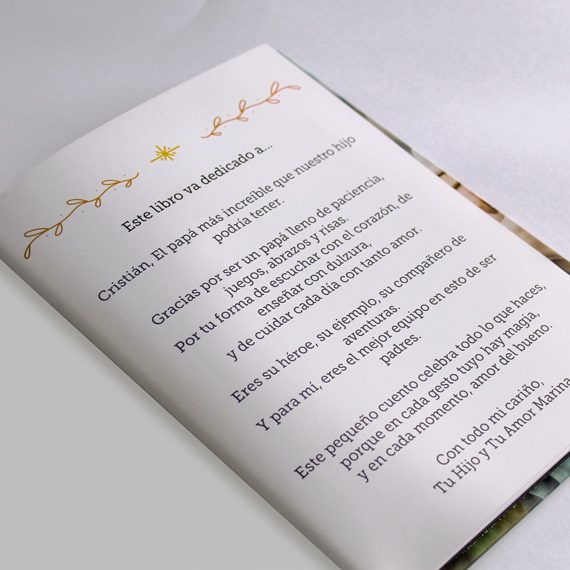 Este libro va dedicado a...
Cristián, El papá más increíble que nuestro hijo
podría tener.
Gracias por ser un papá lleno de paciencia,
juegos, abrazos y risas.
Por tu forma de escuchar con el corazón, de
enseñar con dulzura,
y de cuidar cada día con tanto amor.
Eres su héroe, su ejemplo, su compañero de
aventuras.
Y para mí, eres el mejor equipo en esto de ser
padres.
Este pequeño cuento celebra todo lo que haces,
porque en cada gesto tuyo hay magia,
y en cada momento, amor del bueno.
Con todo mi cariño,
Tu Hijo y Tu Amor Marina